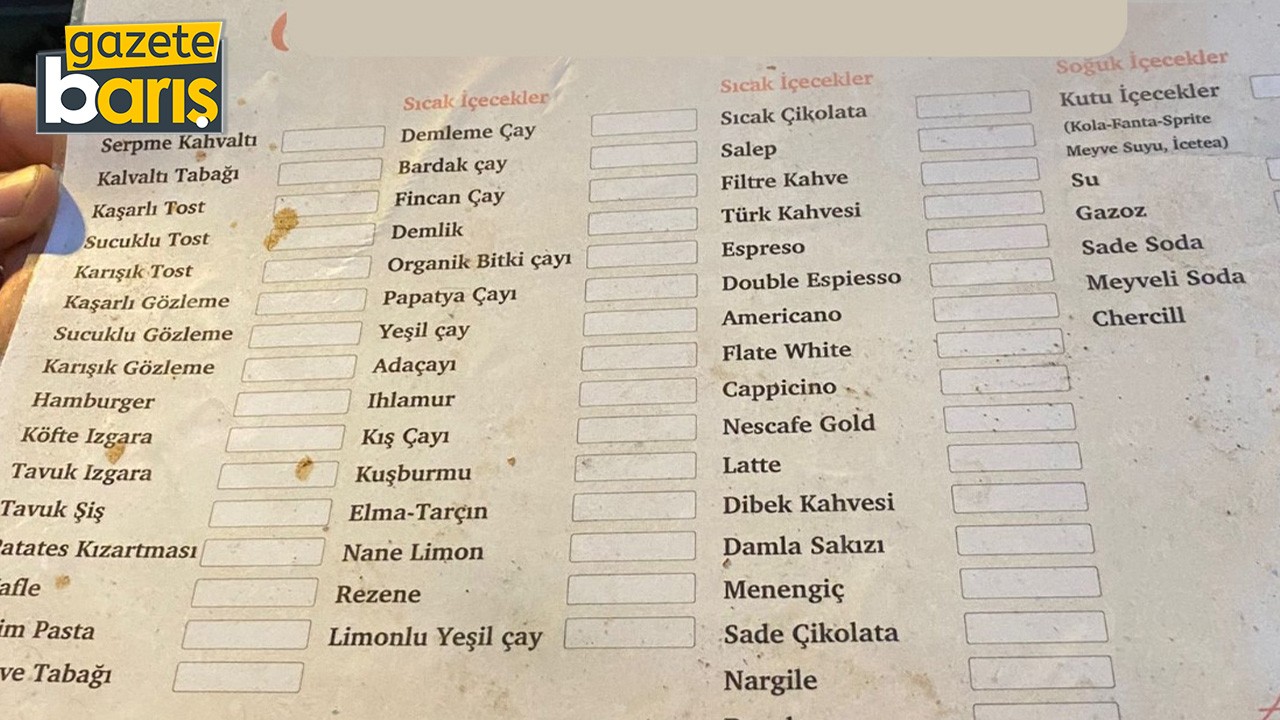 gazete
barış
Serpme Kahvaltı
Kalvaltı Tabağı
Kaşarlı Tost
Sucuklu Tost
Karışık Tost
Kaşarlı Gözleme
Sucuklu Gözleme
Karışık Gözleme
Hamburger
Köfte Izgara
Tavuk Izgara
Tavuk Şiş
Kızartması
Pasta
Tabağı
Sıcak İçecekler
Demleme Çay
Bardak çay
Fincan Çay
Demlik
Organik Bitki çayı
Papatya Çayı
Yeşil çay
Adaçayı
Ihlamur
Kış Çayı
Kuşburmu
Elma-Tarçın
Nane Limon
Rezene
Limonlu Yeşil çay
Sıcak İçecekler
Sıcak Çikolata
Salep
Filtre Kahve
Türk Kahvesi
Espreso
Double Espiesso
Americano
Flate White
Cappicino
Nescafe Gold
Latte
Dibek Kahvesi
Damla Sakızı
Menengiç
Sade Çikolata
Nargile
Soğuk İçecekler
Kutu İçecekler
(Kola-Fanta-Sprite
Meyve Suyu, İcetea)
Su
Gazoz
Sade Soda
Meyveli Soda
Chercill